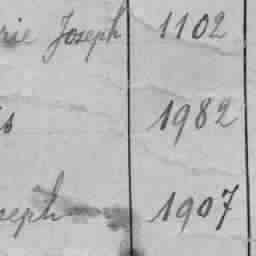 rie Joseph 1102
is 1982
seph 1907